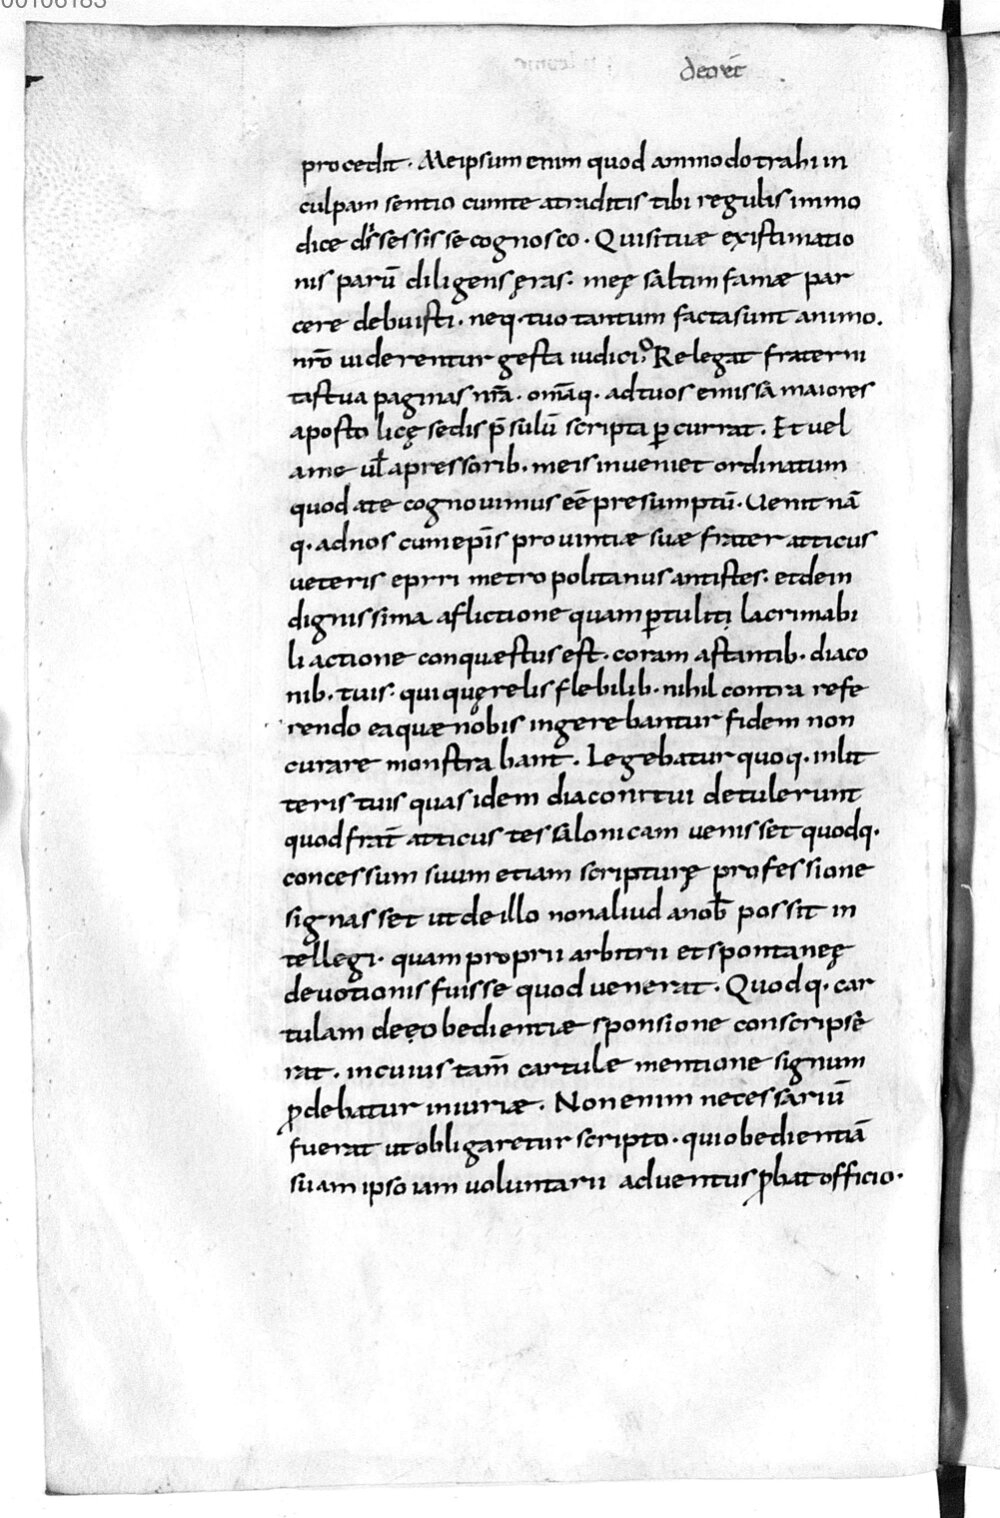 00106183
decret
procedit. Meipsum enim quod ammodo trahi in
culpam sentio cum te a traditis tibi regulis inmo
dice discessisse cognosco. Qui si tuæ existimatio
nis parū diligens ęras. meę saltim famæ par
cere debuisti. neq. tuo tantum facta sunt animo.
nr̄o viderentur gesta iudicio. Relegat fraterni
tas tua paginas nr̄a. omāq. ad tuos emissa maiores
apostolicę sedis p̄sulū scripta p̱currat. Et vel
a me vl̄ a pressorib. meis inveniet ordinatum
quod a te cognovimus eē presumptū. Venit nā
q. ad nos cum ep̄is provintiæ suæ frater atticus
veteris epyri metropolitanus antistes. et de in
dignissima aflictione quam p̱tulit lacrimabi
li actione conquæstus est. coram astantib. diaco
nib. tuis. qui quęrelis flebilib. nihil contra refe
rendo ea quæ nobis ingerebantur fidem non
curare monstrabant. Legebatur quoq. in lit
teris tuis quas idem diaconi tui detulerunt
quod frat̄ atticus tessalonicam venisset quodq.
concessum suum etiam scripturę professione
signasset ut de illo non aliud a nob̄ possit in
tellegi. quam proprii arbitrii et spontaneę
devotionis fuisse quod venerat. Quodq. car
tulam de ęobedientiæ sponsione conscripse
rat. in cuius tam̄ cartule mentione signum
p̱debatur iniuriæ. Non enim necessariū
fuerat ut obligaretur scripto. qui obedientiā
suam ipso iam voluntarii adventus p̱bat officio.